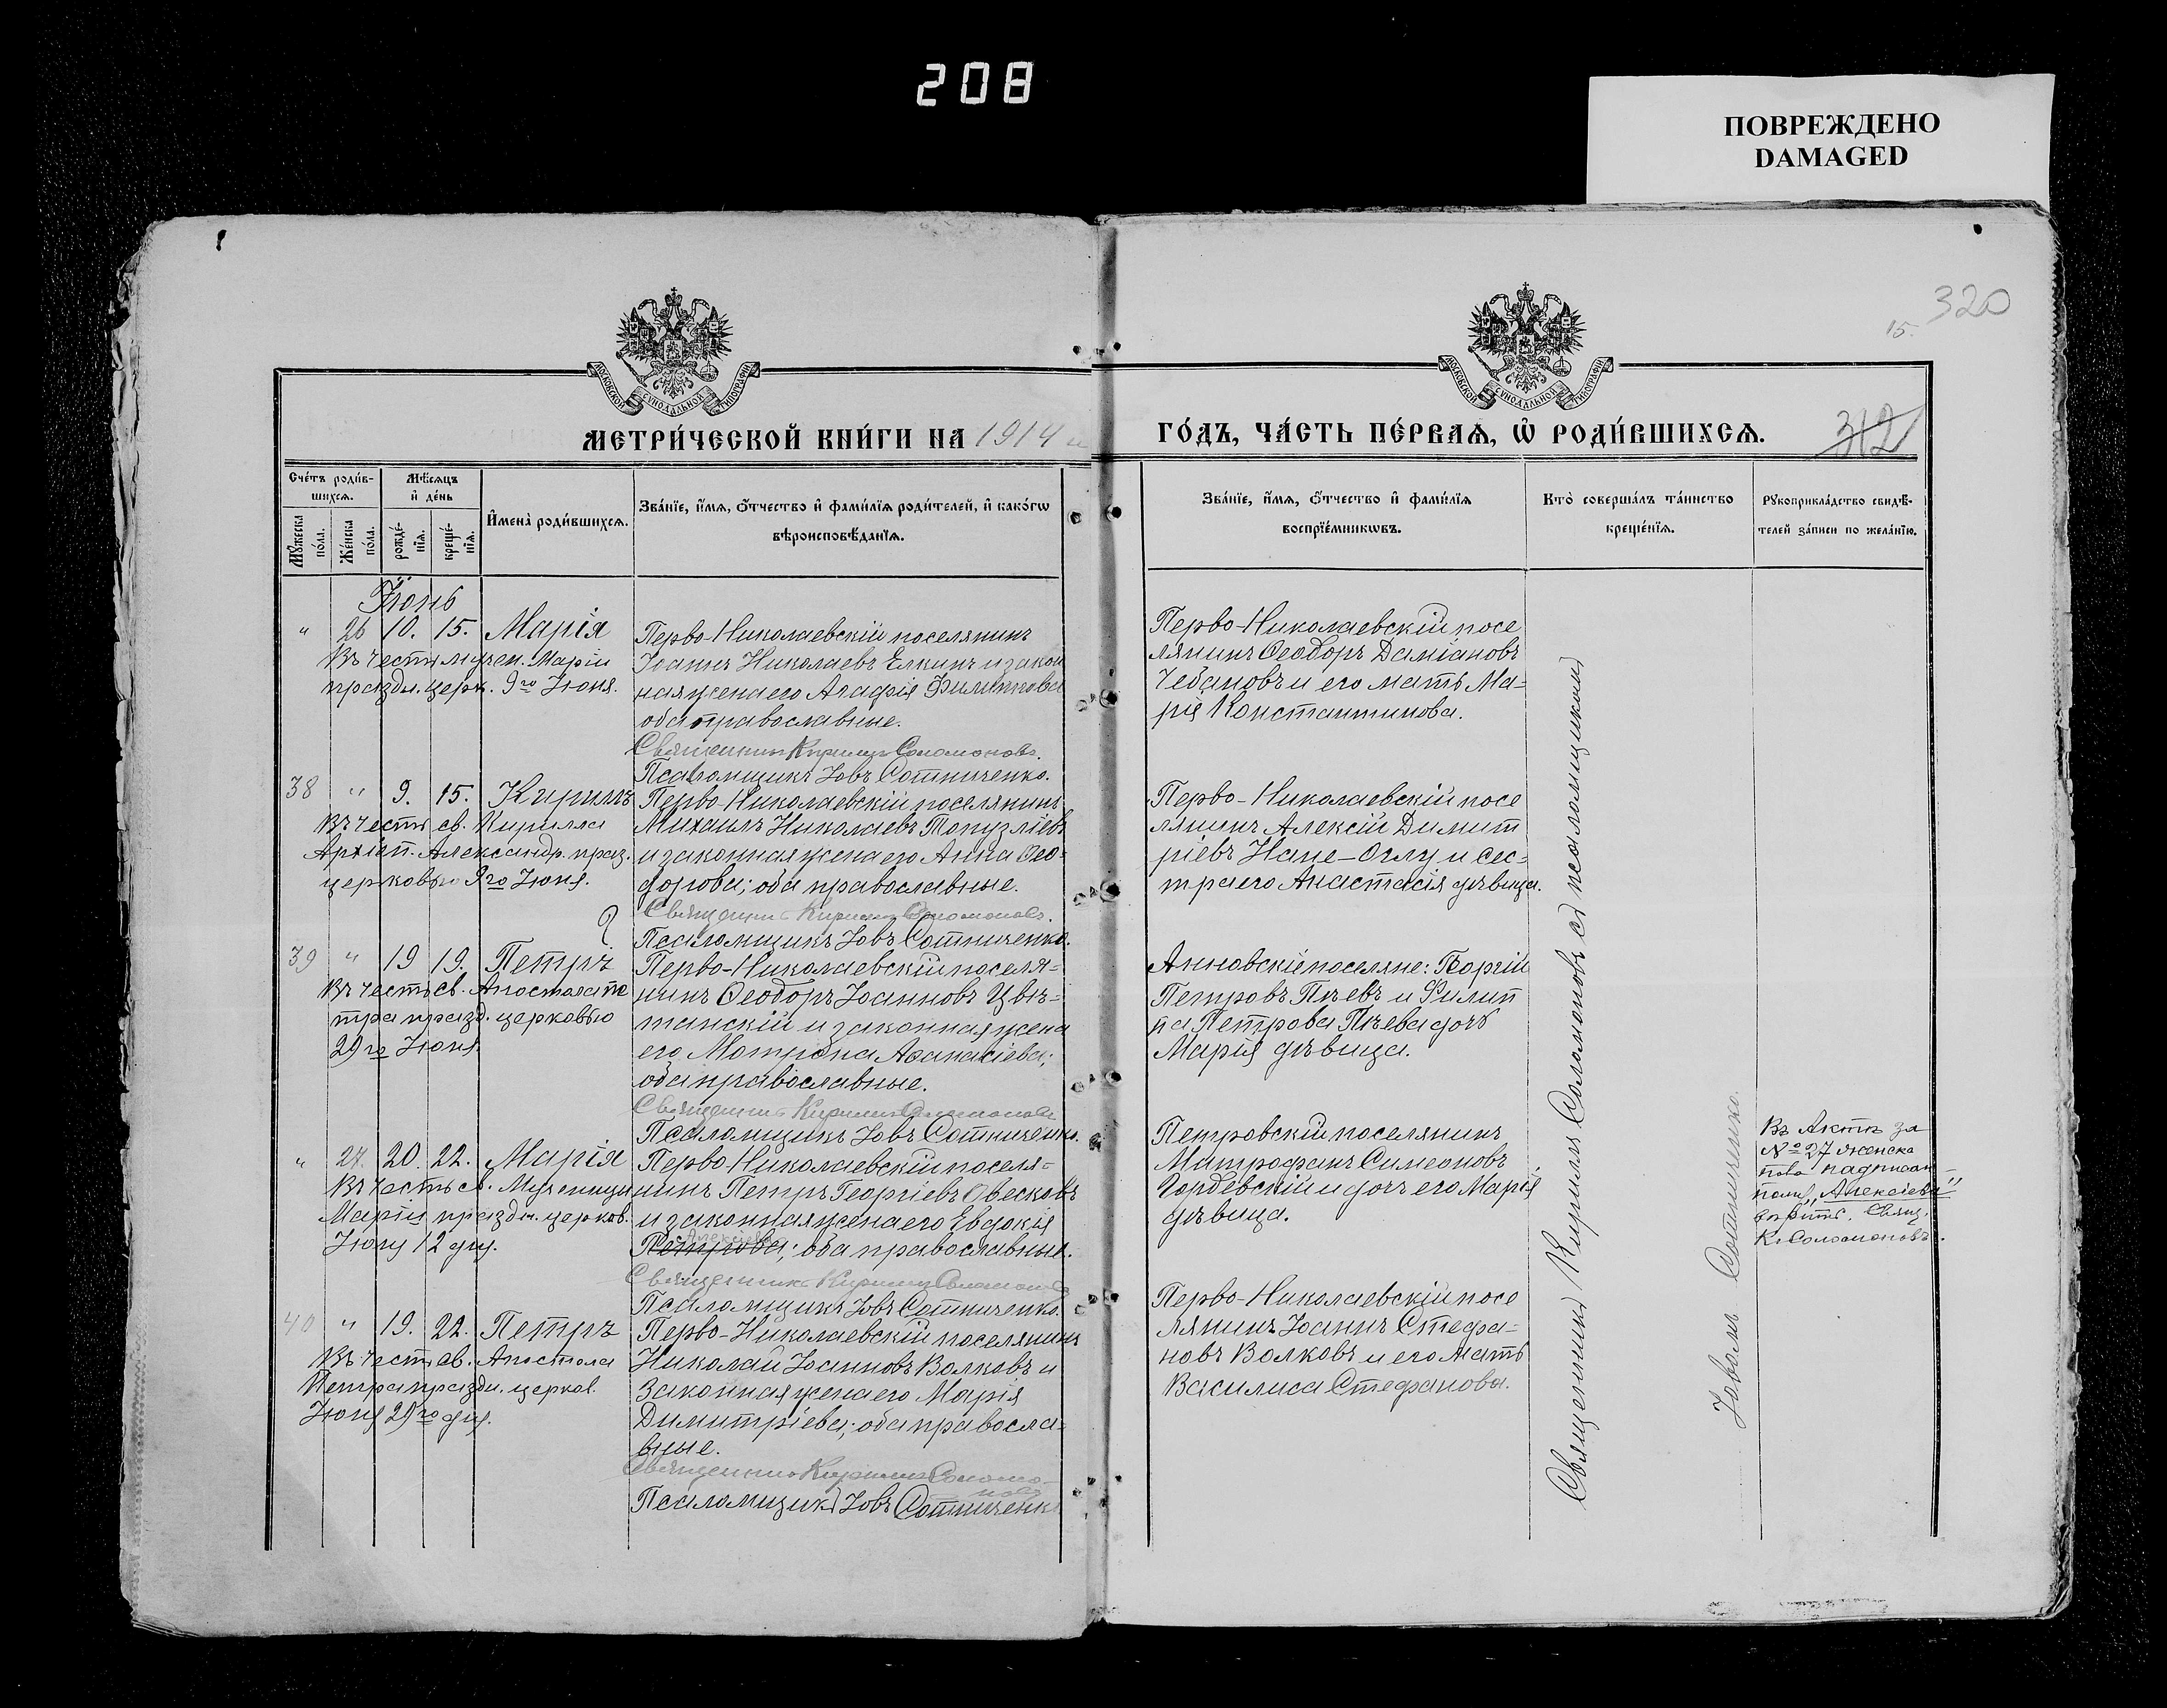 208
ПОВРЕЖДЕНО
DAMAGED
320
15.
МОСКОВСКОЙ СУНОДАЛЬНОЙ ТИПОГРАФІИ
МОСКОВСКОЙ СУНОДАЛЬНОЙ ТИПОГРАФІИ
МЕТРИ́ЧЕСКОЙ КНИ́ГИ НА 1914
ГО́ДЪ, ЧА́СТЬ ПЕ́РВАѦ, Ѡ҆ РОДИ́ВШИХСѦ.
312
Сче́тъ роди́в-
шихсѧ.
Мѣ́сѧцъ
и҆ де́нь
Мꙋ́жеска
по́ла.
Же́нска
по́ла.
рожде́-
нїѧ.
креще́-
нїѧ.
И҆мена̀ роди́вшихсѧ.
Зва́нїе, и҆́мѧ, ѻ҆́тчество и҆ фами́лїѧ роди́телей, и҆ како́гѡ
вѣроисповѣ́данїѧ.
Зва́нїе, и҆́мѧ, ѻ҆́тчество и҆ фами́лїѧ
воспрїе́мникѡвъ.
Кто̀ соверша́лъ та́инство
креще́нїѧ.
Рꙋкоприкла́дство свидѣ́-
телей за́писи по жела́нїю.
Іюнь
" 26 10. 15. Марія
Въ честь мучен. Маріи
праздн. церк. 9го Іюня.
Перво-Николаевскій поселянинъ
Іоаннъ Николаевъ Елкинъ и закон
ная жена его Агафія Филиппова
оба православные.
Священникъ Кириллъ Соломоновъ.
Псаломщикъ Іовъ Сотниченко.
Перво-Николаевскій посе
лянинъ Ѳеодоръ Даміановъ
Чебановъ и его мать Ма=
рія Константинова.
38 " 9. 15. Кириллъ
Въ честь св. Кирилла
Архіеп. Александр. праз.
церковью 9го Іюня.
Перво-Николаевскій поселянинъ
Михаилъ Николаевъ Топузліевъ
и законная жена его Анна Ѳео=
дорова; оба православные.
Священникъ Кириллъ Соломоновъ.
Псаломщикъ Іовъ Сотниченко.
Перво-Николаевскій посе
лянинъ Алексій Димит
ріевъ Напе-Оглу и сес=
тра его Анастасія дѣвица.
39 " 19 19. Петръ
Въ честь св. Апостола Пе
тра празд. церковью
29го Іюня.
Перво-Николаевскій поселя=
нинъ Ѳеодоръ Іоанновъ Цвѣ=
танскій и законная жена
его Матрона Аѳанасіева;
оба православные.
Священникъ Кириллъ Соломоновъ
Псаломщикъ Іовъ Сотниченко.
Анновскіе поселяне: Георгій
Петровъ Пѣевъ и Филип
па Петрова Пѣева дочь
Марія дѣвица.
" 27. 20. 22. Марія
Въ честь св. Мученицы
Маріи праздн. церков.
Іюля 12 дня.
Перво-Николаевскій поселя=
нинъ Петръ Георгіевъ Овесковъ
и законная жена его Евдокія
Алексіева
Петрова; оба православные.
Священникъ Кириллъ Соломоновъ
Псаломщикъ Іовъ Сотниченко.
Петровскій поселянинъ
Митрофанъ Симеоновъ
Горбевскій и дочь его Марія
дѣвица.
Въ Актѣ за
№ 27 женска
пола надписан
ному „Алексіева"
вѣрить. Свящ.
К. Соломоновъ.
40 " 19. 22. Петръ
Въ честь св. Апостола
Петра праздн. церков.
Іюня 29го дня.
Перво-Николаевскій поселянинъ
Николай Іоанновъ Волковъ и
законная жена его Марія
Димитріева; оба правосла=
вные.
Священникъ Кириллъ Соломо-
новъ
Псаломщикъ Іовъ Сотниченко
Перво-Николаевскій посе
лянинъ Іоаннъ Стефа=
новъ Волковъ и его мать
Василиса Стефанова.
Священникъ Кириллъ Соломоновъ съ псаломщикомъ
Іовомъ Сотниченко.